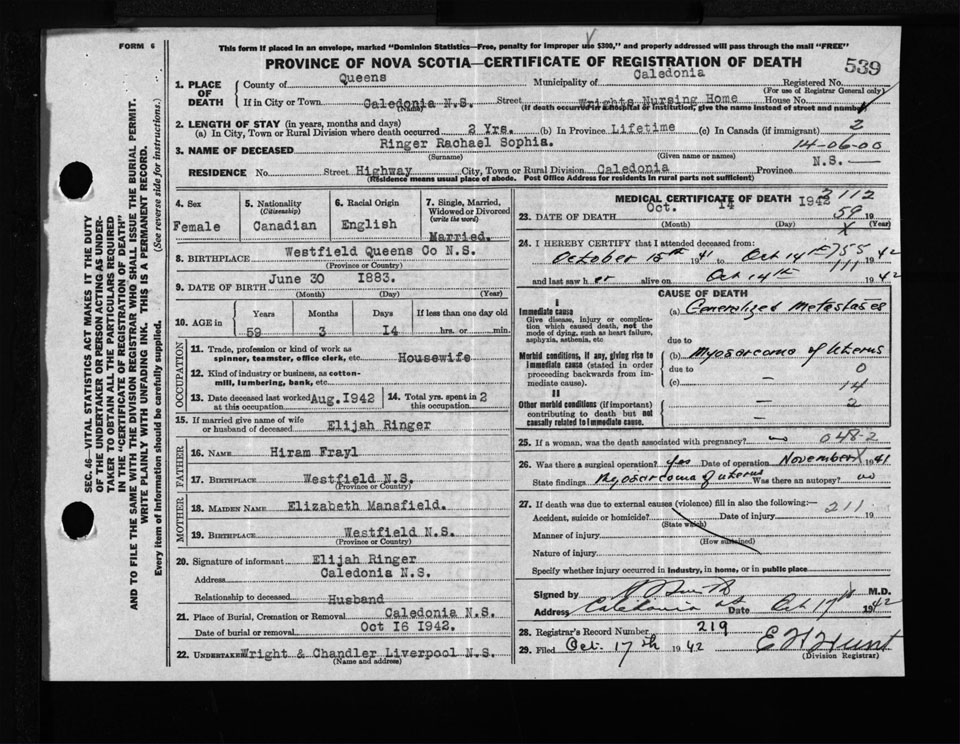 FORM 6
This form if placed in an envelope, marked "Dominion Statistics—Free, penalty for improper use $300," and properly addressed will pass through the mail "FREE"
PROVINCE OF NOVA SCOTIA—CERTIFICATE OF REGISTRATION OF DEATH
539
1. PLACE OF DEATH
County of Queens Municipality of Caledonia Registered No.
(For use of Registrar General only)
If in City or Town Caledonia N.S. Street Wrights Nursing Home House No.
(Name) (If death occurred in a hospital or institution, give the name instead of street and number)
2. LENGTH OF STAY (in years, months and days)
(a) In City, Town or Rural Division where death occurred 2 Yrs. (b) In Province Lifetime (c) In Canada (if immigrant) 2
3. NAME OF DECEASED Ringer Rachael Sophia. 14-06-00
(Surname) (Given name or names)
RESIDENCE No. Street Highway City, Town or Rural Division Caledonia Province N.S. —
(Residence means usual place of abode. Post Office Address for residents in rural parts not sufficient)
4. Sex
Female
5. Nationality
(Citizenship)
Canadian
6. Racial Origin
English
7. Single, Married, Widowed or Divorced
(write the word)
Married.
8. BIRTHPLACE Westfield Queens Co N.S.
(Province or Country)
9. DATE OF BIRTH June 30 1883.
(Month) (Day) (Year)
10. AGE in
Years Months Days If less than one day old
59 3 14 hrs. or min.
OCCUPATION
11. Trade, profession or kind of work as
spinner, teamster, office clerk, etc. Housewife
12. Kind of industry or business, as cotton-
mill, lumbering, bank, etc.
13. Date deceased last worked at this occupation Aug. 1942
14. Total yrs. spent in this occupation. 2
15. If married give name of wife
or husband of deceased Elijah Ringer
FATHER
16. NAME Hiram Frayl
17. BIRTHPLACE Westfield N.S.
(Province or Country)
MOTHER
18. MAIDEN NAME Elizabeth Mansfield.
19. BIRTHPLACE Westfield N.S.
(Province or Country)
20. Signature of informant Elijah Ringer
Address Caledonia N.S.
Relationship to deceased Husband
21. Place of Burial, Cremation or Removal Caledonia N.S.
Date of burial or removal Oct 16 1942.
22. UNDERTAKER Wright & Chandler Liverpool N.S.
(Name and address)
MEDICAL CERTIFICATE OF DEATH
2112
23. DATE OF DEATH Oct. 14 1942
59 19
(Month) (Day) (Year)
24. I HEREBY CERTIFY that I attended deceased from:
October 15th 1941 to Oct 14th 1942
755
and last saw her alive on Oct 14th 1942
111
CAUSE OF DEATH
I
Immediate cause
Give disease, injury or complication which caused death, not the mode of dying, such as heart failure, asphyxia, asthenia, etc
(a) Generalized Metastases
due to
Morbid conditions, if any, giving rise to immediate cause (stated in order proceeding backwards from immediate cause).
(b) Myosarcoma of Uterus
due to 0
(c) — 14
II
Other morbid conditions (if important) contributing to death but not causally related to immediate cause.
— 2
25. If a woman, was the death associated with pregnancy? no 048-2
26. Was there a surgical operation? Yes Date of operation November 1941
State findings Myosarcoma of uterus Was there an autopsy? no
27. If death was due to external causes (violence) fill in also the following:—
Accident, suicide or homicide? Date of injury 211 19
(State which)
Manner of injury
(How sustained)
Nature of injury
Specify whether injury occurred in industry, in home, or in public place
Signed by M.D.
Address Caledonia NS Date Oct 17th 1942
28. Registrar's Record Number 219
29. Filed Oct. 17th 1942 E H Hunt
(Division Registrar)
SEC. 46—VITAL STATISTICS ACT MAKES IT THE DUTY
OF THE UNDERTAKER OR PERSON ACTING AS UNDER-
TAKER TO OBTAIN ALL THE PARTICULARS REQUIRED
IN THE "CERTIFICATE OF REGISTRATION OF DEATH"
AND TO FILE THE SAME WITH THE DIVISION REGISTRAR WHO SHALL ISSUE THE BURIAL PERMIT.
WRITE PLAINLY WITH UNFADING INK. THIS IS A PERMANENT RECORD.
Every item of Information should be carefully supplied. (See reverse side for instructions.)